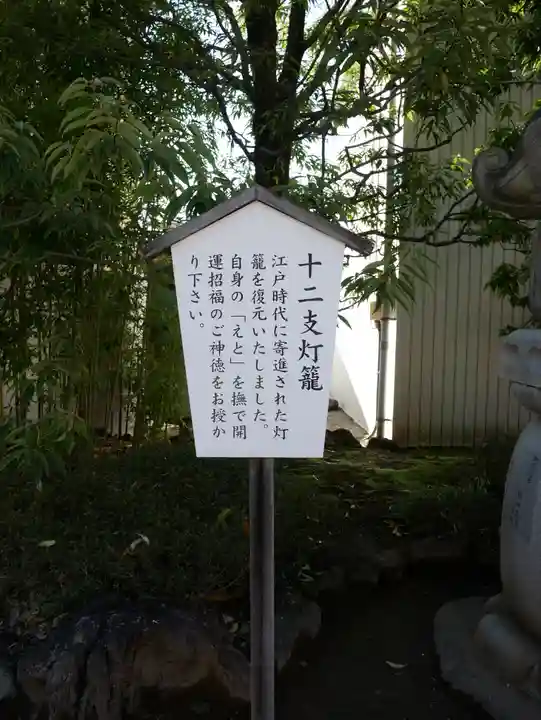 十二支灯籠
江戸時代に寄進された灯
籠を復元いたしました。
自身の「えと」を撫で開
運招福のご神徳をお授か
り下さい。